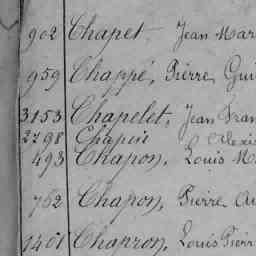 902 Chapet, Jean Mar
959 Chappé, Pierre, Gui
3153 Chapelet, Jean Fran
2298 Chapin Alexis
493 Chapon, Louis M
762 Chapon, Pierre Au
1401 Chapron, Louis Pierr